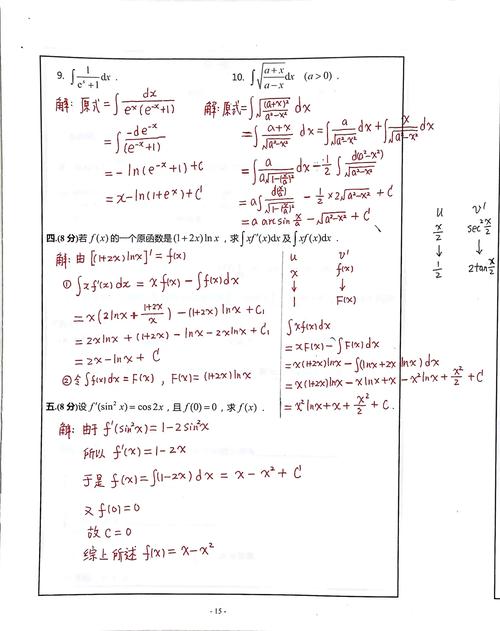 9. ∫ 1/(eˣ+1) dx .
解: 原式 = ∫ dx/(eˣ(e⁻ˣ+1))
= ∫ -de⁻ˣ/(e⁻ˣ+1)
= -ln(e⁻ˣ+1)+C
= x-ln(1+eˣ)+C
10. ∫ √((a+x)/(a-x)) dx (a>0) .
解: 原式 = ∫ √((a+x)²/(a²-x²)) dx
= ∫ (a+x)/√(a²-x²) dx = ∫ a/√(a²-x²) dx + ∫ x/√(a²-x²) dx
= ∫ a/(a√(1-(x/a)²)) dx - 1/2 ∫ d(a²-x²)/√(a²-x²)
= a∫ d(x/a)/√(1-(x/a)²) - 1/2 × 2√(a²-x²) + C
= a arcsin x/a - √(a²-x²) + C
四.(8 分)若 f(x) 的一个原函数是 (1+2x)ln x , 求 ∫xf′(x)dx 及 ∫xf(x)dx .
解: 由 [(1+2x)lnx]′ = f(x)
① ∫xf′(x)dx = xf(x) - ∫f(x)dx
= x(2lnx + (1+2x)/x) - (1+2x)lnx + C₁
= 2xlnx + (1+2x) - lnx - 2xlnx + C₁
= 2x - lnx + C
② 令 ∫f(x)dx = F(x) , F(x) = (1+2x)lnx
u v′
x f(x)
↓ ↓
1 F(x)
∫xf(x)dx
= xF(x) - ∫F(x)dx
= x(1+2x)lnx - ∫(lnx+2xlnx)dx
= x(1+2x)lnx - xlnx + x - x²lnx + x²/2 + C
= x²lnx + x + x²/2 + C .
u v′
x/2 sec² x/2
↓ ↓
1/2 2tan x/2
五.(8 分)设 f′(sin² x) = cos 2x , 且 f(0) = 0 , 求 f(x) .
解: 由于 f′(sin²x) = 1-2sin²x
所以 f′(x) = 1-2x
于是 f(x) = ∫(1-2x)dx = x - x² + C
又 f(0) = 0
故 C = 0
综上所述 f(x) = x - x²
- 15 -